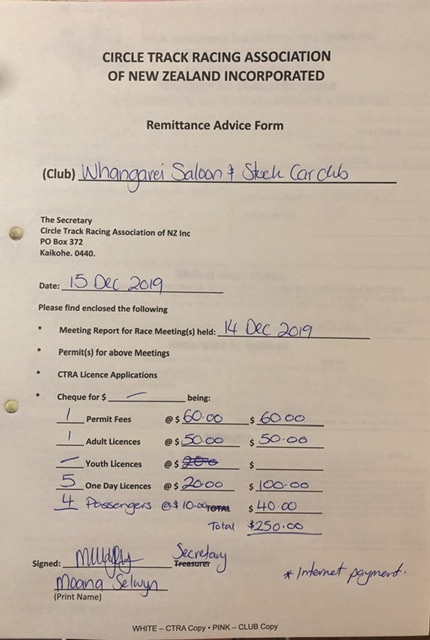 CIRCLE TRACK RACING ASSOCIATION
OF NEW ZEALAND INCORPORATED
Remittance Advice Form
(Club) Whangarei Saloon & Stock Car club
The Secretary
Circle Track Racing Association of NZ Inc
PO Box 372
Kaikohe. 0440.
Date: 15 Dec 2019
Please find enclosed the following
• Meeting Report for Race Meeting(s) held: 14 Dec 2019
• Permit(s) for above Meetings
• CTRA Licence Applications
• Cheque for $ — being:
1 Permit Fees @ $ 60.00 $ 60.00
1 Adult Licences @ $ 50.00 $ 50.00
— Youth Licences @ $ $
5 One Day Licences @ $ 20.00 $ 100.00
4 Passengers @ $ 10.00 TOTAL $ 40.00
Total $250.00
Signed: Secretary
Treasurer
* Internet payment.
Moana Selwyn
(Print Name)
WHITE – CTRA Copy • PINK – CLUB Copy